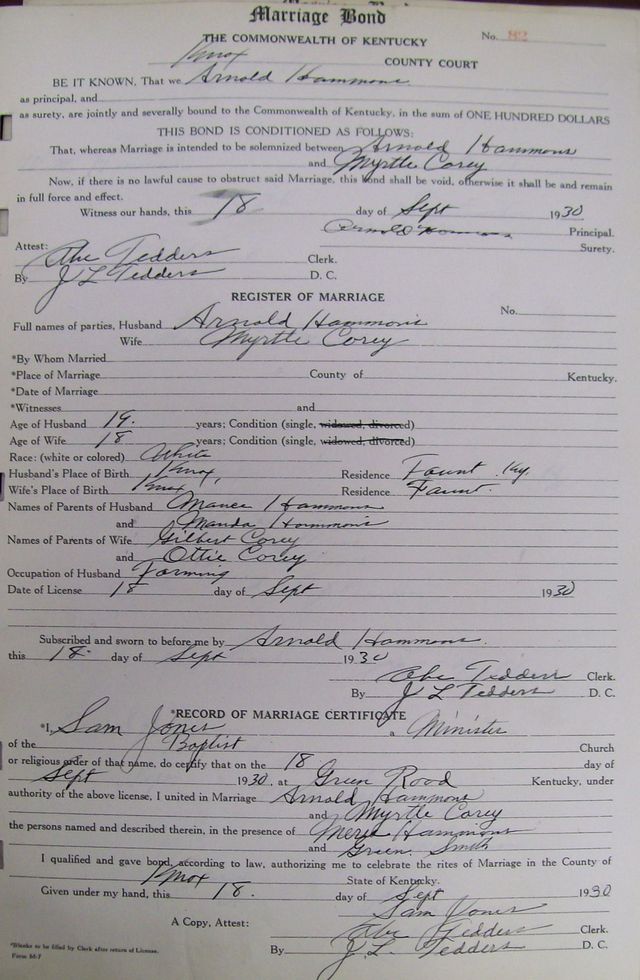 Marriage Bond
THE COMMONWEALTH OF KENTUCKY No. 82
Knox COUNTY COURT
BE IT KNOWN, That we Arnold Hammons
as principal, and
as surety, are jointly and severally bound to the Commonwealth of Kentucky, in the sum of ONE HUNDRED DOLLARS
THIS BOND IS CONDITIONED AS FOLLOWS:
That, whereas Marriage is intended to be solemnized between Arnold Hammons
and Myrtle Corey
Now, if there is no lawful cause to obstruct said Marriage, this Bond shall be void, otherwise it shall be and remain
in full force and effect.
Witness our hands, this 18 day of Sept 1930
Arnold Hammons Principal.
Surety.
Attest:
Abe Tedders Clerk.
By J L Tedders D. C.
REGISTER OF MARRIAGE
No.
Full names of parties, Husband Arnold Hammons
Wife Myrtle Corey
*By Whom Married
*Place of Marriage County of Kentucky.
*Date of Marriage
*Witnesses and
Age of Husband 19. years; Condition (single, widowed, divorced)
Age of Wife 18 years; Condition (single, widowed, divorced)
Race: (white or colored) White
Husband's Place of Birth Knox, Residence Faunt Ky.
Wife's Place of Birth Knox Residence Faunt.
Names of Parents of Husband Hammons
and Manda Hammons
Names of Parents of Wife Gilbert Corey
and Ottie Corey
Occupation of Husband Farming
Date of License 18 day of Sept 1930
Subscribed and sworn to before me by Arnold Hammons.
this 18 day of Sept 1930
Abe Tedders Clerk.
By J L Tedders D. C.
*RECORD OF MARRIAGE CERTIFICATE
*I, Sam Jones a Minister
of the Baptist Church
or religious order of that name, do certify that on the 18 day of
Sept 1930, at Green Road Kentucky, under
authority of the above license, I united in Marriage Arnold Hammons
and Myrtle Corey
the persons named and described therein, in the presence of Hammons
and Green Smith
I qualified and gave bond, according to law, authorizing me to celebrate the rites of Marriage in the County of
Knox State of Kentucky.
Given under my hand, this 18. day of Sept 1930
Sam Jones
A Copy, Attest: Abe Tedders Clerk.
By J. L. Tedders D. C.
*Blanks to be filled by Clerk after return of License.
Form M-7